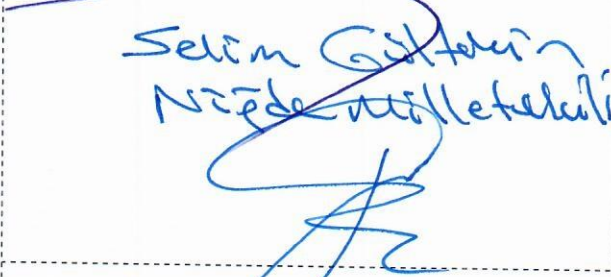 Selim Gültekin
Niğde Milletvekili